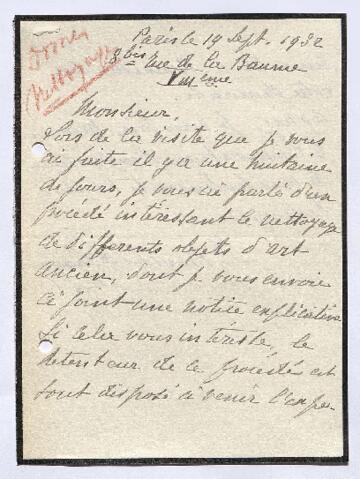 Paris le 14 Sept. 1932
8bis Rue de la Baume
VIIIeme
Nettoyage
Monsieur,
Lors de la visite que je vous
ai faite il y a une huitaine
de jours, je vous ai parlé d'un
procédé intéressant le nettoyage
de différents objets d'art
ancien, dont je vous envoie
ci joint une notice explicative
Si cela vous intéresse, le
détenteur de ce procédé est
tout disposé à venir l'expo-